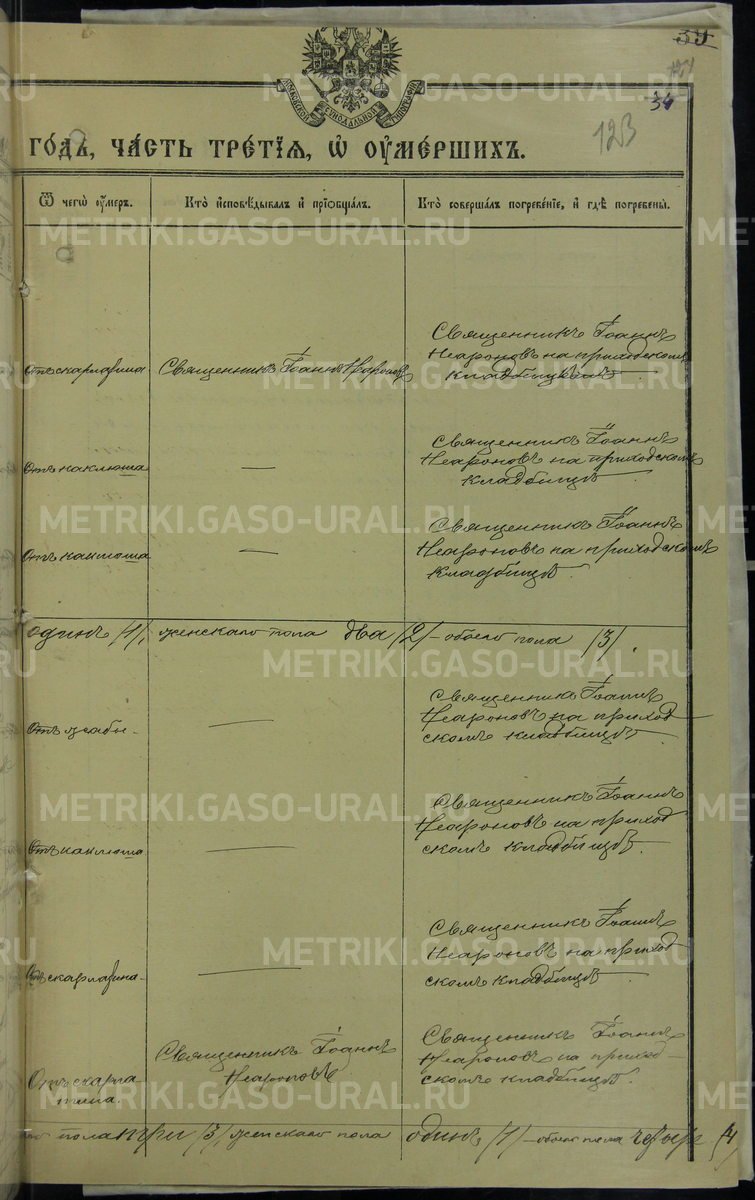 39
123
34
МОСКОВСКОЙ СѴНОДАЛЬНОЙ ТИПОГРАФІИ
го́дъ, ча́сть тре́тїѧ, ѡ҆ ᲂу҆ме́ршихъ.
Ѿ чегѡ̀ ᲂу҆́меръ.
Кто̀ и҆сповѣ́дывалъ и҆ прїѡбща́лъ.
Кто̀ соверша́лъ погребе́нїе, и҆ гдѣ̀ погребены̀.
Отъ скарлатина
Священникъ Іоаннъ Неароновъ
Священникъ Іоаннъ
Неароновъ на приходскомъ
кладбищѣ
Отъ каклюша
—
Священникъ Іоаннъ
Неароновъ на приходскомъ
кладбищѣ
Отъ каклюша
—
Священникъ Іоаннъ
Неароновъ на приходскомъ
кладбищѣ.
одинъ /1/, женскаго пола два /2/ – обоего пола /3/.
—
Священникъ Іоаннъ
Неароновъ на приход
скомъ кладбищѣ.
Отъ каклюша
—
Священникъ Іоаннъ
Неароновъ на приход
скомъ кладбищѣ.
Отъ скарлатина
—
Священникъ Іоаннъ
Неароновъ на приход
скомъ кладбищѣ
Отъ скарла
тина.
Священникъ Іоаннъ
Неароновъ
Священникъ Іоаннъ
Неароновъ на приход–
скомъ кладбищѣ.
пола три /3/, женскаго пола один, /1/ – обоего пола четыре /4/
METRIKI.GASO-URAL.RU